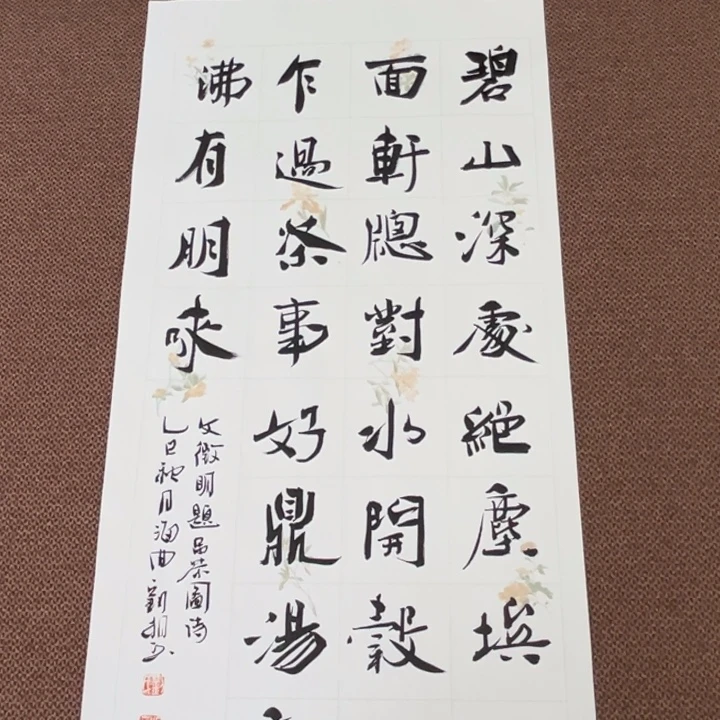 碧山深處絶塵埃
面軒牕對水開穀
乍過茶事好鼎湯
沸有朋來
文徵明題品茶圖詩
乙巳秋月海曲劉